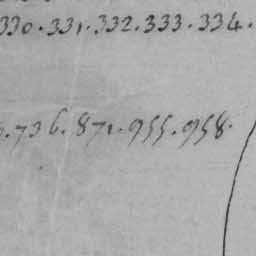 330.331.332.333.334.
.736.871.955.958.